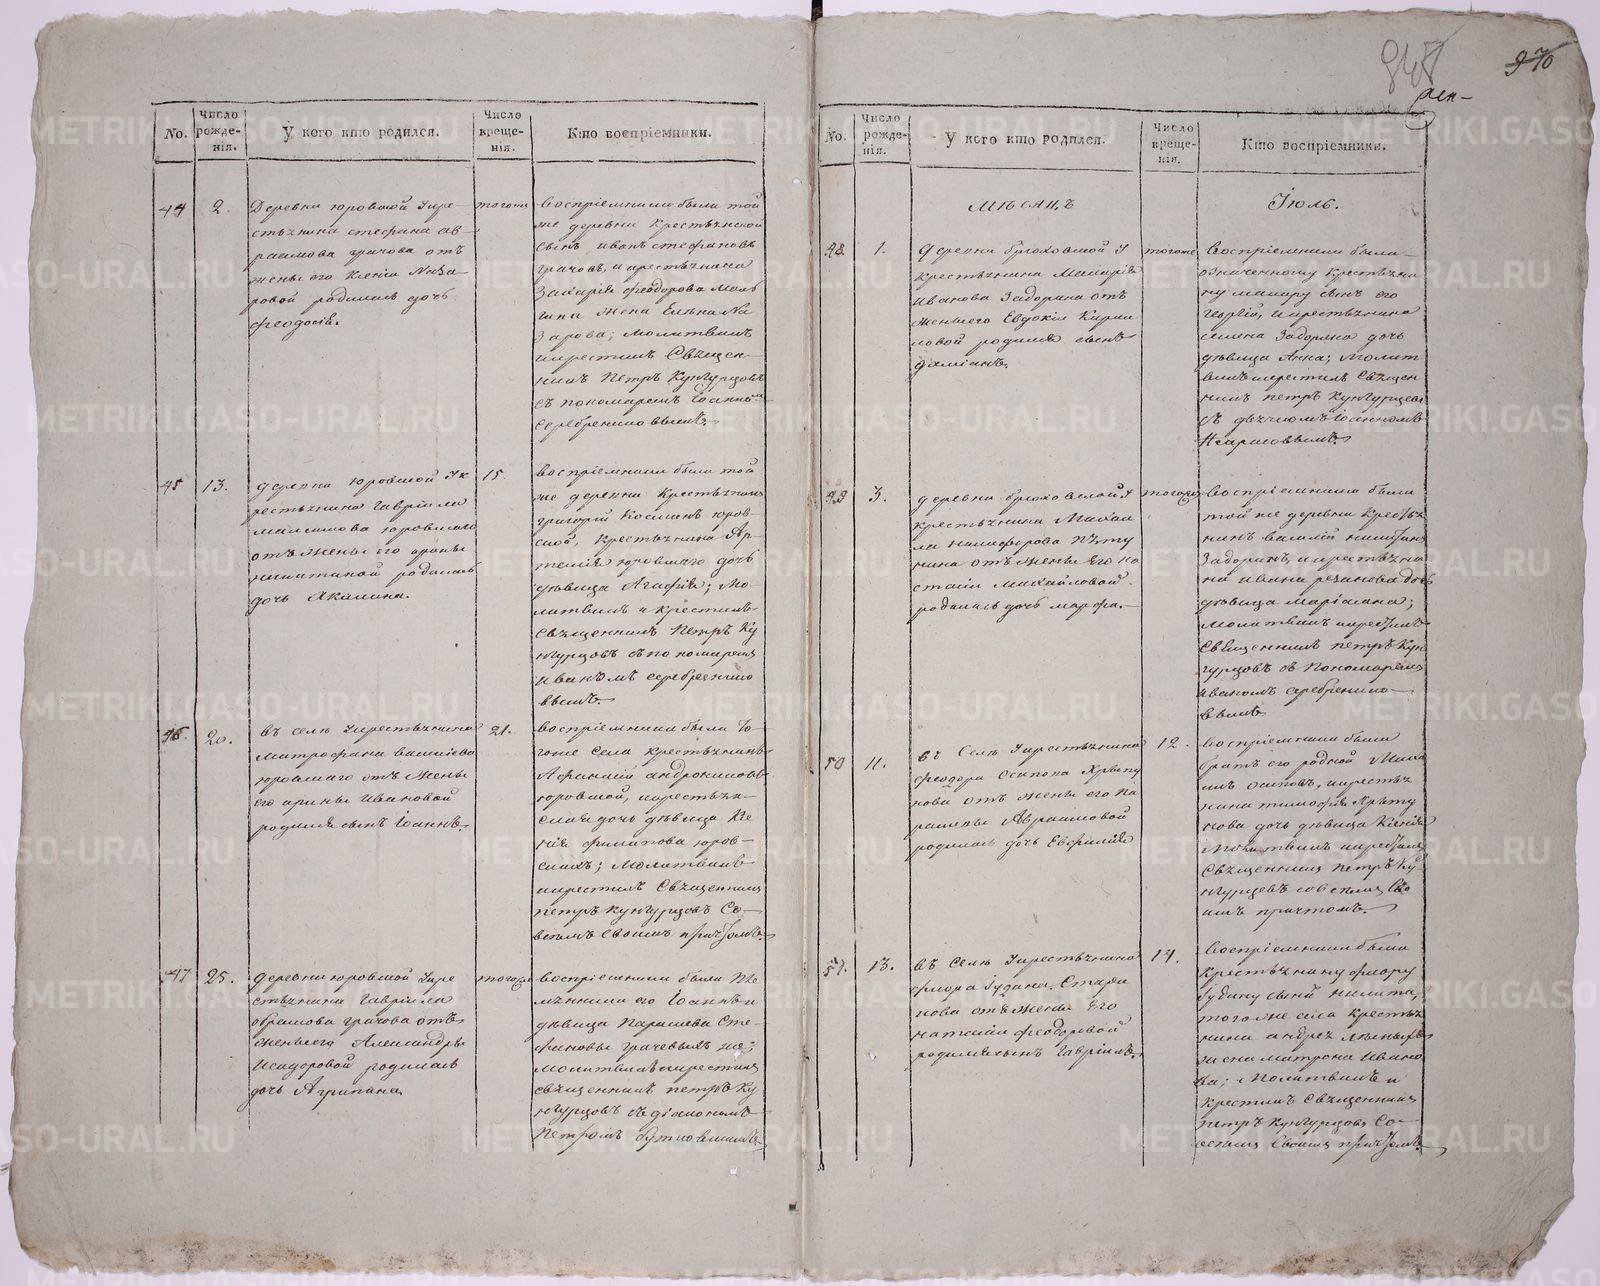 970
No.
Число рожденія.
У кого кто родился.
Число крещенія.
Кто воспріемники.
44
2.
Деревни юровшой Укре-
стьянина стефана ав-
раамова грачова отъ
жены его Ксеніи Наза-
ровой родилась дочь
феодосія.
тогожъ
воспріемники были той
же деревни крестьянской
сынъ иванъ стефановъ
грачовъ, и крестьянина
Захарія феодорова
жена Елена На-
зарова; молитвилъ
и крестилъ Священ-
никъ Петръ Кунгурцовъ
съ пономаремъ Іоанно-
Серебренниковымъ.
45
13.
деревни юровшой У к
рестьянина Гавріила
максимова юровшаго
отъ жены его ирины
никитиной родилась
дочь Акилина.
15.
воспріемники были той
же деревни Крестьянинъ
григорій Космин юров-
ской, крестьянина Ар-
темія юровшаго дочь
дѣвица Агафія; Мо-
литвилъ и крестилъ
Священникъ Петръ Ку
нгурцовъ съ пономаремъ
иваномъ серебренико
вымъ.
46.
20.
въ селѣ Укрестьянина
митрофана василіева
юровшаго отъ жены
его ирины ивановой
родился сынъ Іоаннъ.
21.
воспріемники были то-
гоже села крестьянинъ
Афанасій андрониковъ
юровшой, и крестьян-
ская дочь дѣвица Ксе
нія филипова юров-
скихъ; Молитвилъ
и крестилъ Священникъ
петръ Кунгурцовъ Со-
всемъ своимъ причтомъ.
47
25.
деревни юровшой Укре
стьянина Гавріила
абрамова грачова отъ
жены его Александры
Исидоровой родилась
дочь Агрипина.
тогожъ
воспріемники были Пле
мянники его Іоаннъ и
дѣвица Параскева Сте-
фановы грачевыхъ же;
молитвилъ и крестилъ
священникъ петръ Ку
нгурцовъ съ діакономъ
Петромъ
No.
Число рожденія.
У кого кто родился.
Число крещенія.
Кто воспріемники.
Мѣсяцъ
Іюль.
48.
1.
деревни брюховшой У
крестьянина Макарія
иванова Задорина отъ
жены его Евдокіи Кирил
ловой родился сынъ
даміанъ.
тогоже
воспріемники были
означенному крестьяни
ну макару сынъ его
георгій, и крестьянина
семена Задорина дочь
дѣвица Анна; Молит
вилъ и крестилъ Священ
никъ петръ Кунгурцовъ
съ дьячкомъ Іоанномъ
49
3.
деревни брюховской У
крестьянина Михаи
ла никифорова пѣту
нина отъ жены его на
стасіи михайловой
родилась дочь марфа.
тогожъ
воспріемники были
той же деревни крестья
нинъ василій никитинъ
Задоринъ, и крестьяни
на ивана резанова дочь
дѣвица маріамна;
молитвилъ и крестилъ
Священникъ петръ Кун
гурцовъ съ Пономаремъ
иваномъ серебренико-
вымъ
50
11.
въ Селѣ Укрестьянина
феодора осипова
отъ жены его па
расковьи Авраамовой
родилась дочь Евфимія
12.
воспріемники были
братъ его родной Миха
илъ осиповъ, и крестья
нина тимофея
дочь дѣвица Ксенія
Молитвилъ и крестилъ
Священникъ петръ Ку
нгурцевъ совсемъ Сво
имъ причтомъ.
51.
13.
въ Селѣ Укрестьянина
флора Гудина Стари
кова отъ жены Его
наталіи феодоровой
родился сынъ Гавріилъ.
14.
воспріемники были
Крестьянину флору
Гудину сынъ никита,
того же села крестья
нина андрея
жена матрона ивано
ва; молитвилъ и
крестилъ Священникъ
петръ Кунгурцовъ Со-
всемъ Своимъ причтомъ.